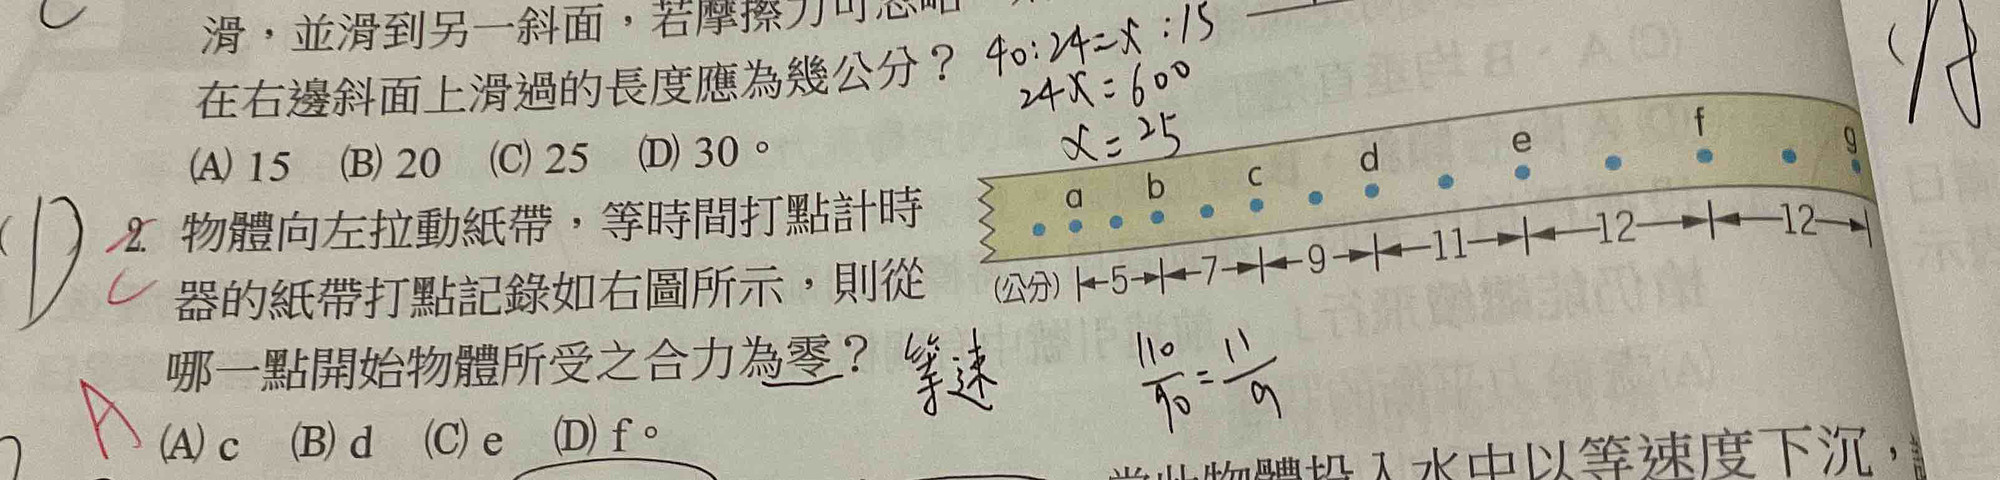 滑,並滑到另一斜面,若摩擦力可忽略
在右邊斜面上滑過的長度應為幾公分?
(A) 15 (B) 20 (C) 25 (D) 30。
40:24=x:15
24x=600
x=25
(D) 2. 物體向左拉動紙帶,等時間打點計時
器的紙帶打點記錄如右圖所示,則從
哪一點開始物體所受之合力為零? 等速
A (A) c (B) d (C) e (D) f。
a b c d e f g
(公分) 5 7 9 11 12 12
110/90=11/9
當此物體投入水中以等速度下沉,